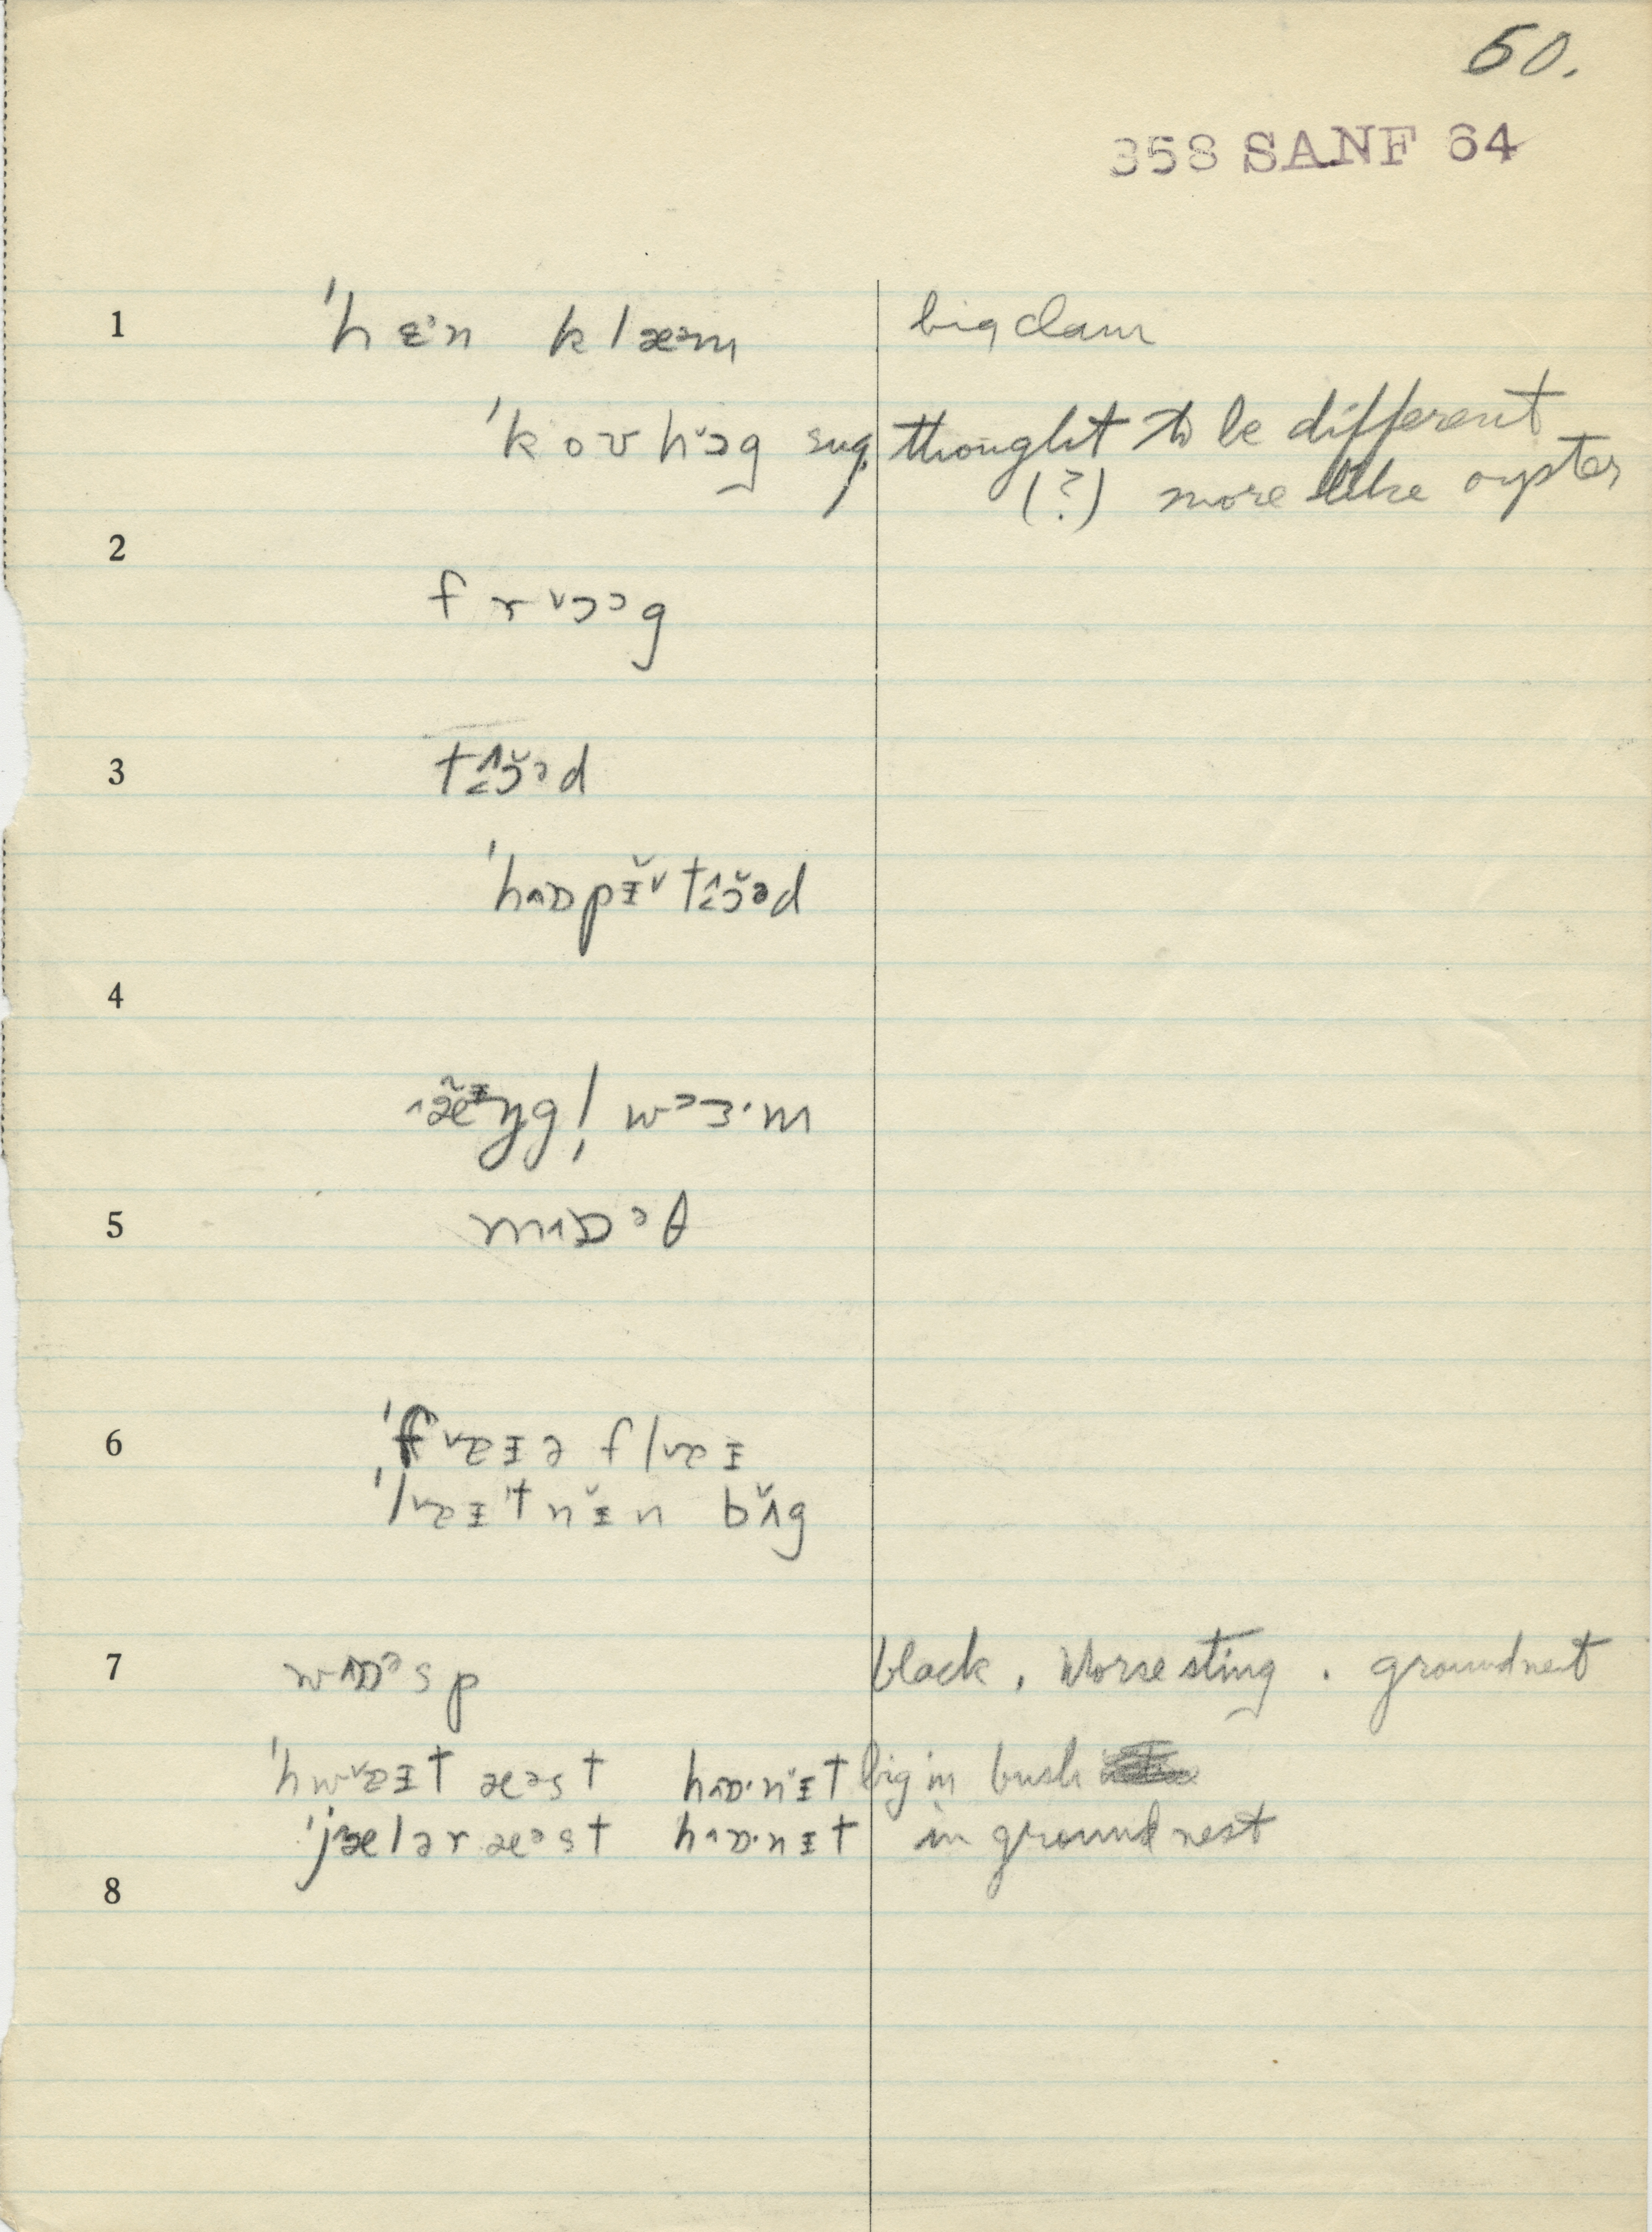 50.
358 SANF 64
1 ˈhɛᵊn klæᵊm big clam
ˈkoʊhɔ̆g sug. thought to be different
(?) more like oyster
2
frᵛɔᵊg
3 tɔ̆ᵊd
ˈhɒpɪ̆ tɔ̆ᵊd
4
æ̃ᵻŋgl̩ wᵊɜ·m
5 mɒᵊθ
6 ˈfaᵻə flaᵻ
ˈlaᵻtnᵻ̆n bʌ̆g
7 wɒᵊsp black. Worse sting. ground nest
ˈhwaᵻt æᵊst hɒ·nᵻ̆t big in bush
ˈjælər æᵊst hɒ·nᵻt in ground nest
8